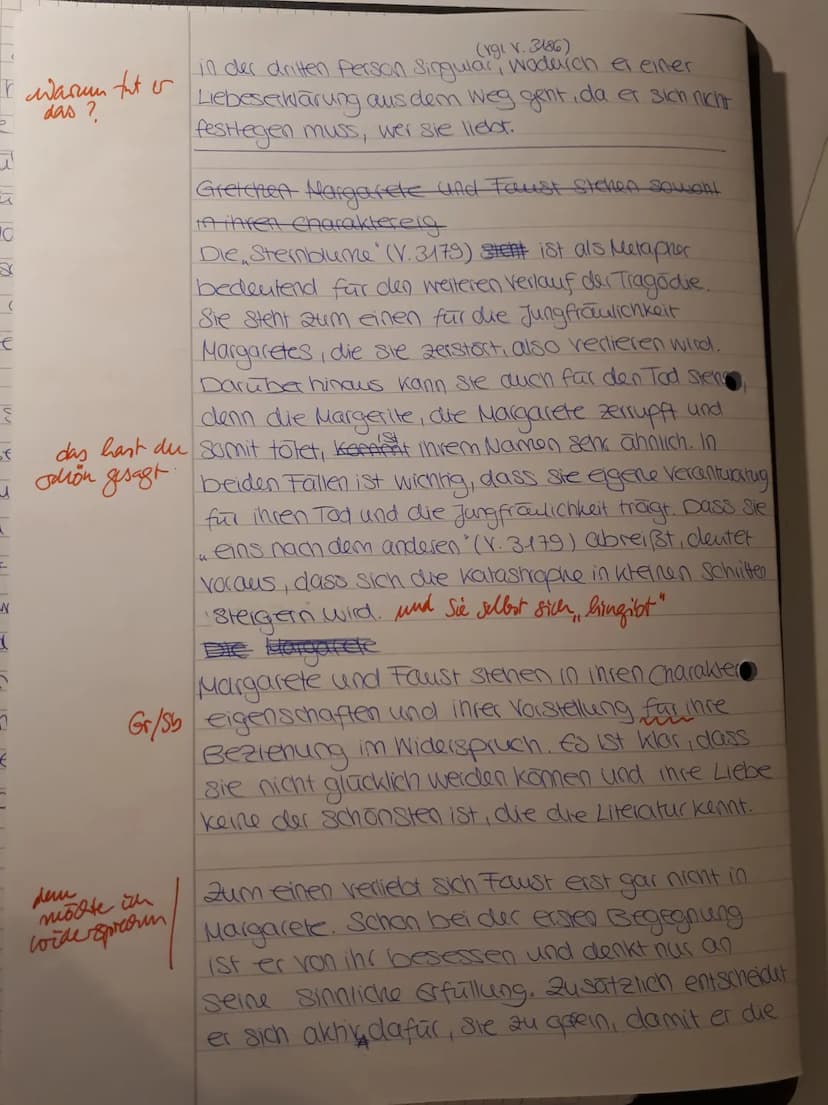 (vgl. V. 3186)
in der dritten Person Singular, wodurch er einer
Warum tut er
das?
Liebeserklärung aus dem Weg geht, da er sich nicht
festlegen muss, wer sie liebt.
Gretchen Margarete und Faust stehen sowohl
in ihren Charaktereig
Die „Sternblume“ (V. 3179) steht ist als Metapher
bedeutend für den weiteren Verlauf der Tragödie.
Sie steht zum einen für die Jungfräulichkeit
Margaretes, die sie zerstört, also verlieren wird.
Darüber hinaus kann sie auch für den Tod stehen,
denn die Margerite, die Margarete zerrupft und
das hast du
schön gesagt.
somit tötet, kommt ist ihrem Namen sehr ähnlich. In
beiden Fällen ist wichtig, dass sie eigene Verantwortung
für ihren Tod und die Jungfräulichkeit trägt. Dass sie
„eins nach dem anderen“ (V. 3179) abreißt, deutet
voraus, dass sich die Katastrophe in kleinen Schritten
steigern wird. und sie selbst sich „hingibt“
Die Margarete
Margarete und Faust stehen in ihren Charakter
Gr/Sb
eigenschaften und ihrer Vorstellung für ihre
Beziehung im Widerspruch. Es ist klar, dass
sie nicht glücklich werden können und ihre Liebe
keine der schönsten ist, die die Literatur kennt.
dem
möchte ich
widersprechen
Zum einen verliebt sich Faust erst gar nicht in
Margarete. Schon bei der ersten Begegnung
ist er von ihr besessen und denkt nur an
seine sinnliche Erfüllung. Zusätzlich entscheidet
er sich aktiv dafür, sie zu, damit er die